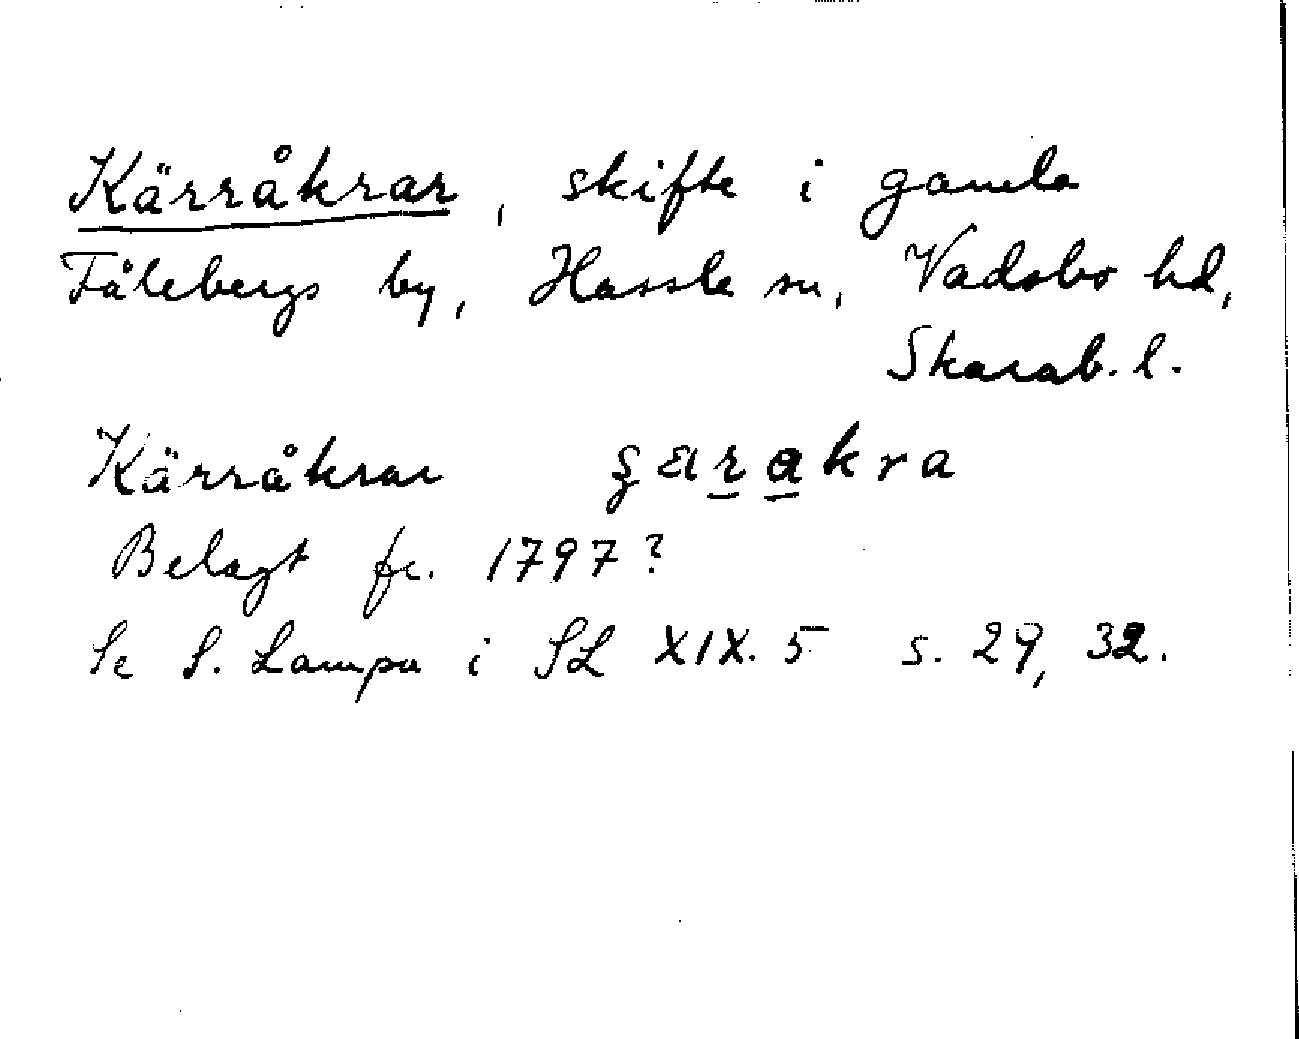 Kärråkrar, skifte i gamla
Fålebergs by, Hassle sn, Vadsbo hd,
Skarab. l.
Kärråkrar
Belagt fr. 1797?
Se S. Lampa i SL XIX. 5 s. 29, 32.